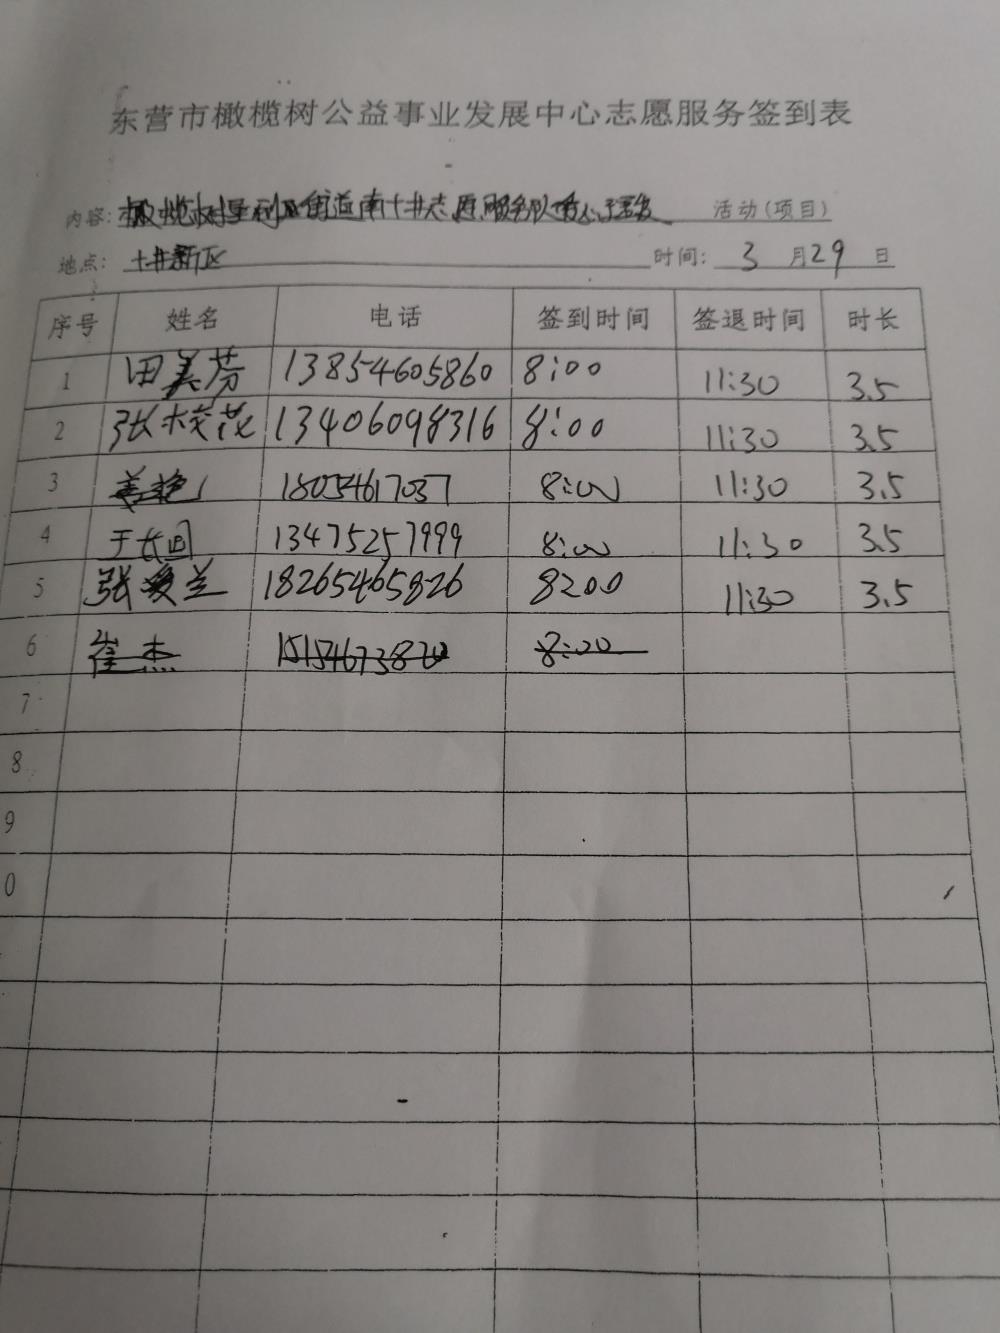 东营市橄榄树公益事业发展中心志愿服务签到表
内容：橄榄树垦利区街道南十井志愿服务队爱心 活动(项目)
地点：十井新区 时间：3月29日
序号 姓名 电话 签到时间 签退时间 时长
1 田美芳 13854605860 8:00 11:30 3.5
2 张 13406098316 8:00 11:30 3.5
3 18054617037 8:00 11:30 3.5
4 13475257999 8:00 11:30 3.5
5 张 兰 18265465826 8:00 11:30 3.5
6 崔杰 8:00
7
8
9
0